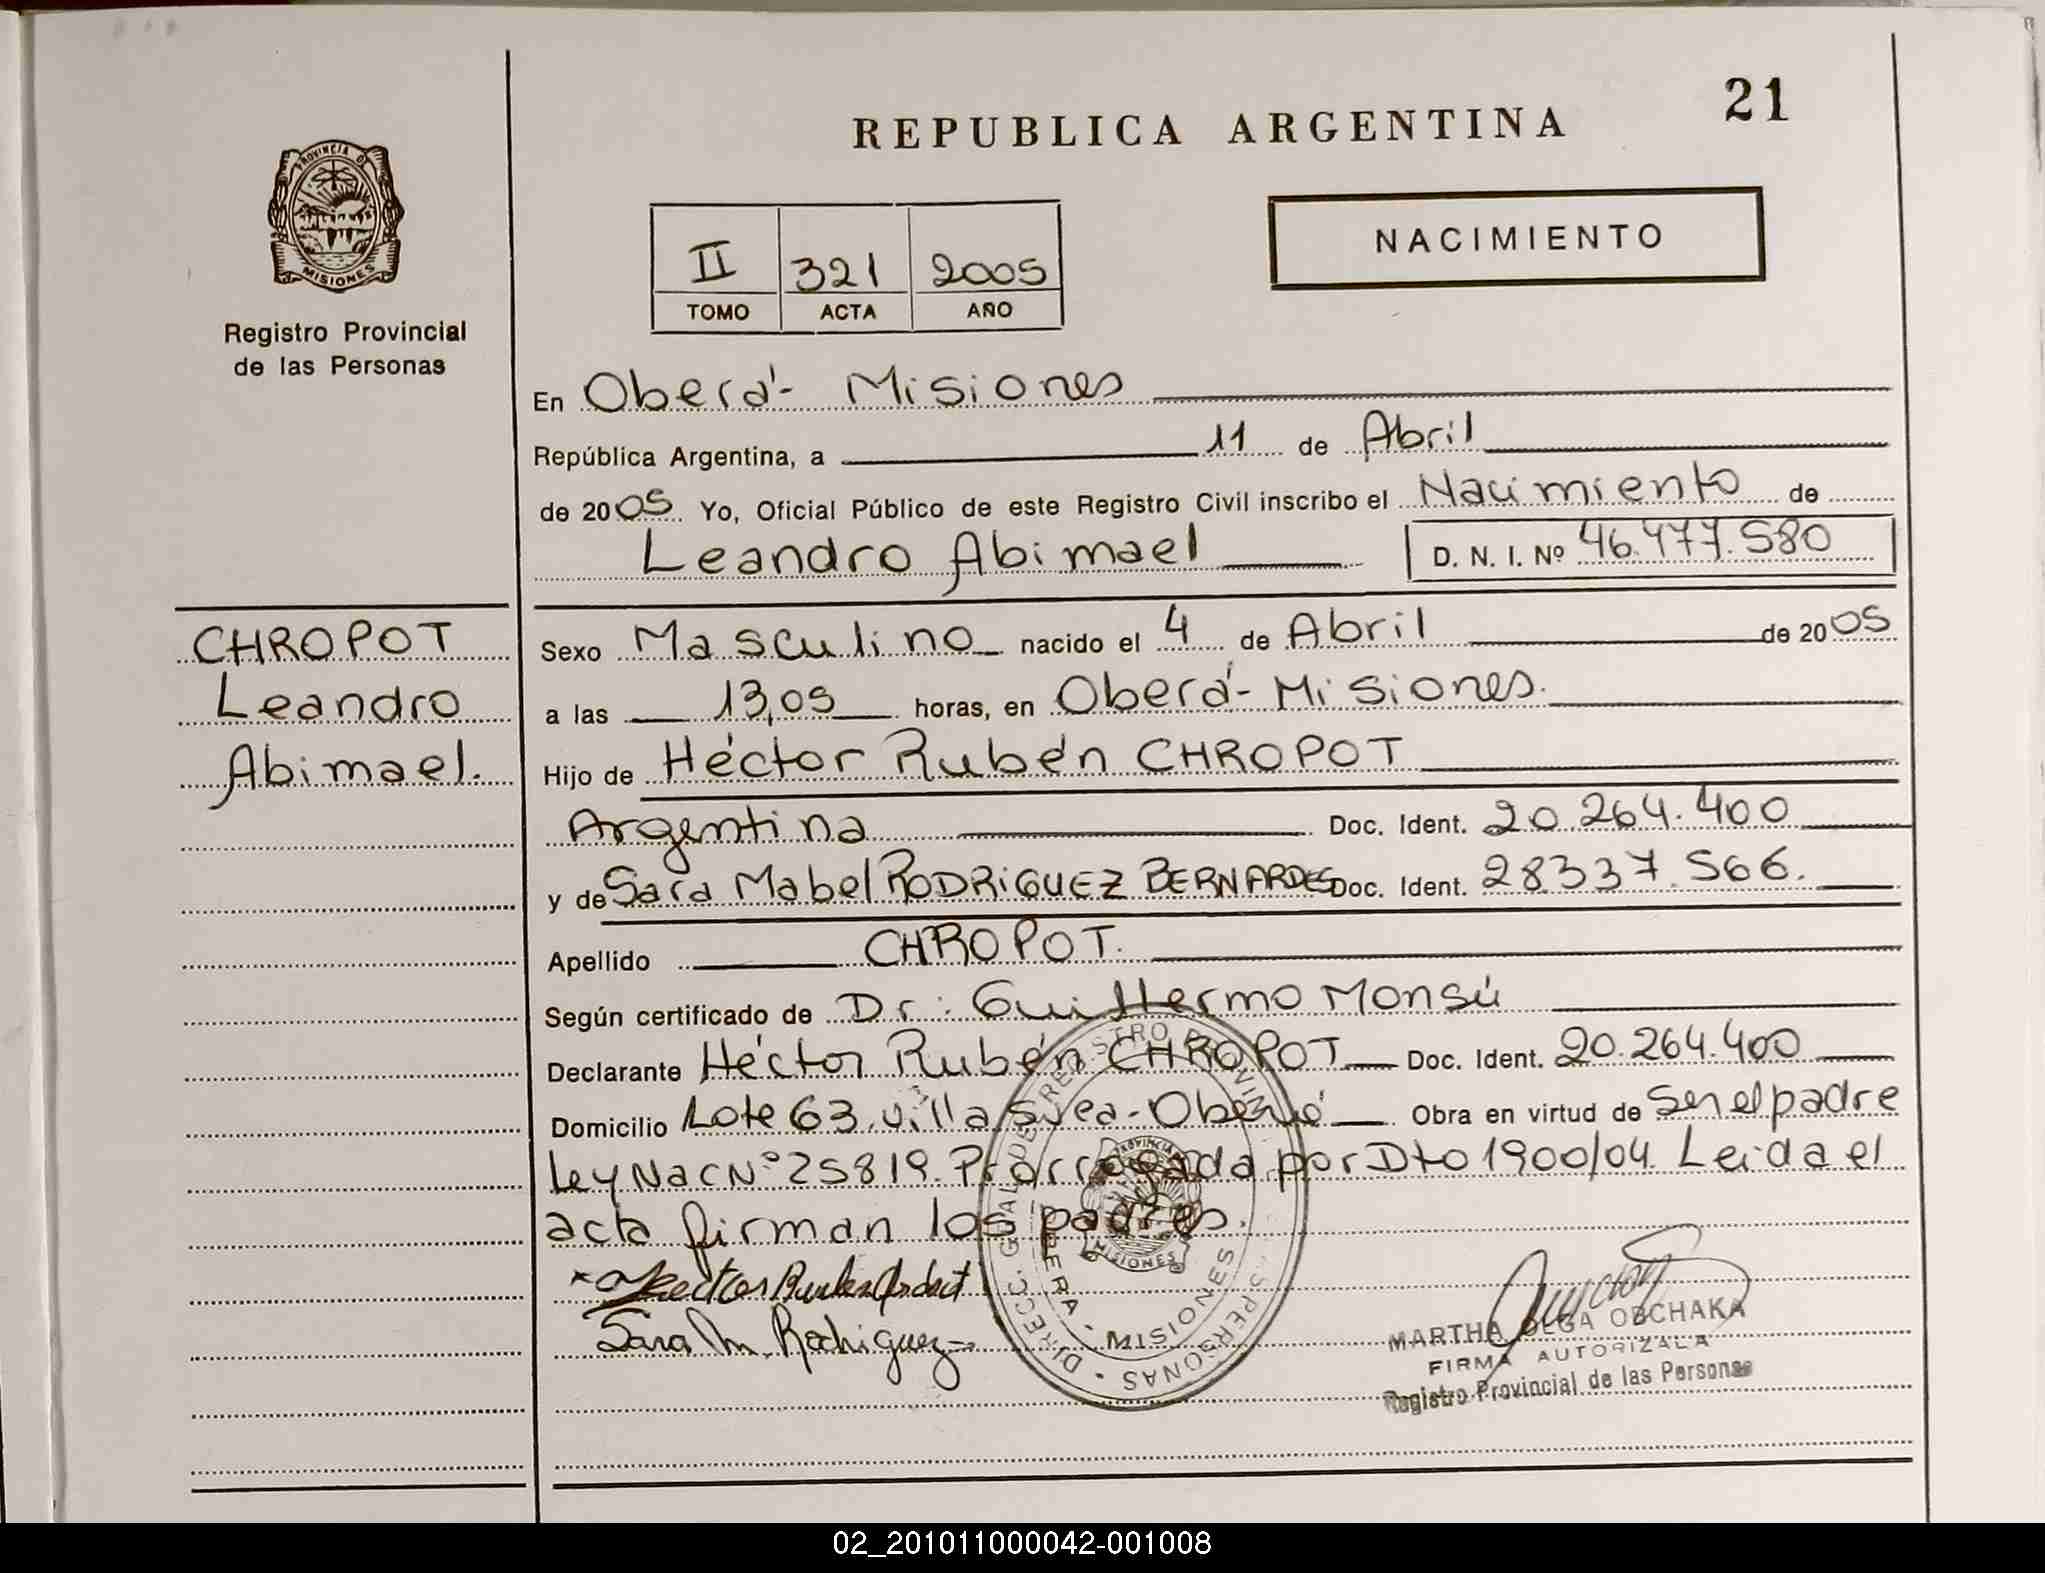 REPUBLICA ARGENTINA
21
PROVINCIA D
MISIONES
Registro Provincial
de las Personas
II 321 2005
TOMO ACTA AÑO
NACIMIENTO
En Oberá - Misiones
República Argentina, a 11 de Abril
de 2005 Yo, Oficial Público de este Registro Civil inscribo el Nacimiento de
Leandro Abimael D. N. I. Nº 46.477.580
CHROPOT
Leandro
Abimael.
Sexo Masculino nacido el 4 de Abril de 2005
a las 13,05 horas, en Oberá - Misiones.
Hijo de Héctor Rubén CHROPOT
Argentina Doc. Ident. 20.264.400
y de Sara Mabel RODRIGUEZ BERNARDES Doc. Ident. 28337.566.
Apellido CHROPOT.
Según certificado de Dr: Guillermo Monsú
Declarante Héctor Rubén CHROPOT Doc. Ident. 20.264.400
Domicilio Lote 63. Villa Svea - Oberá Obra en virtud de Ser el padre
Ley Nac Nº 25819. Prorrogada por Dto 1900/04. Leida el
acta firman los padres.
Sara M. Rodriguez
DIRECC. GRAL. DE REGISTRO PROVIN S PERSONAS
MISIONES
MISIONES
MARTHA OLGA OBCHAKA
FIRMA AUTORIZADA
Registro Provincial de las Personas
02_201011000042-001008